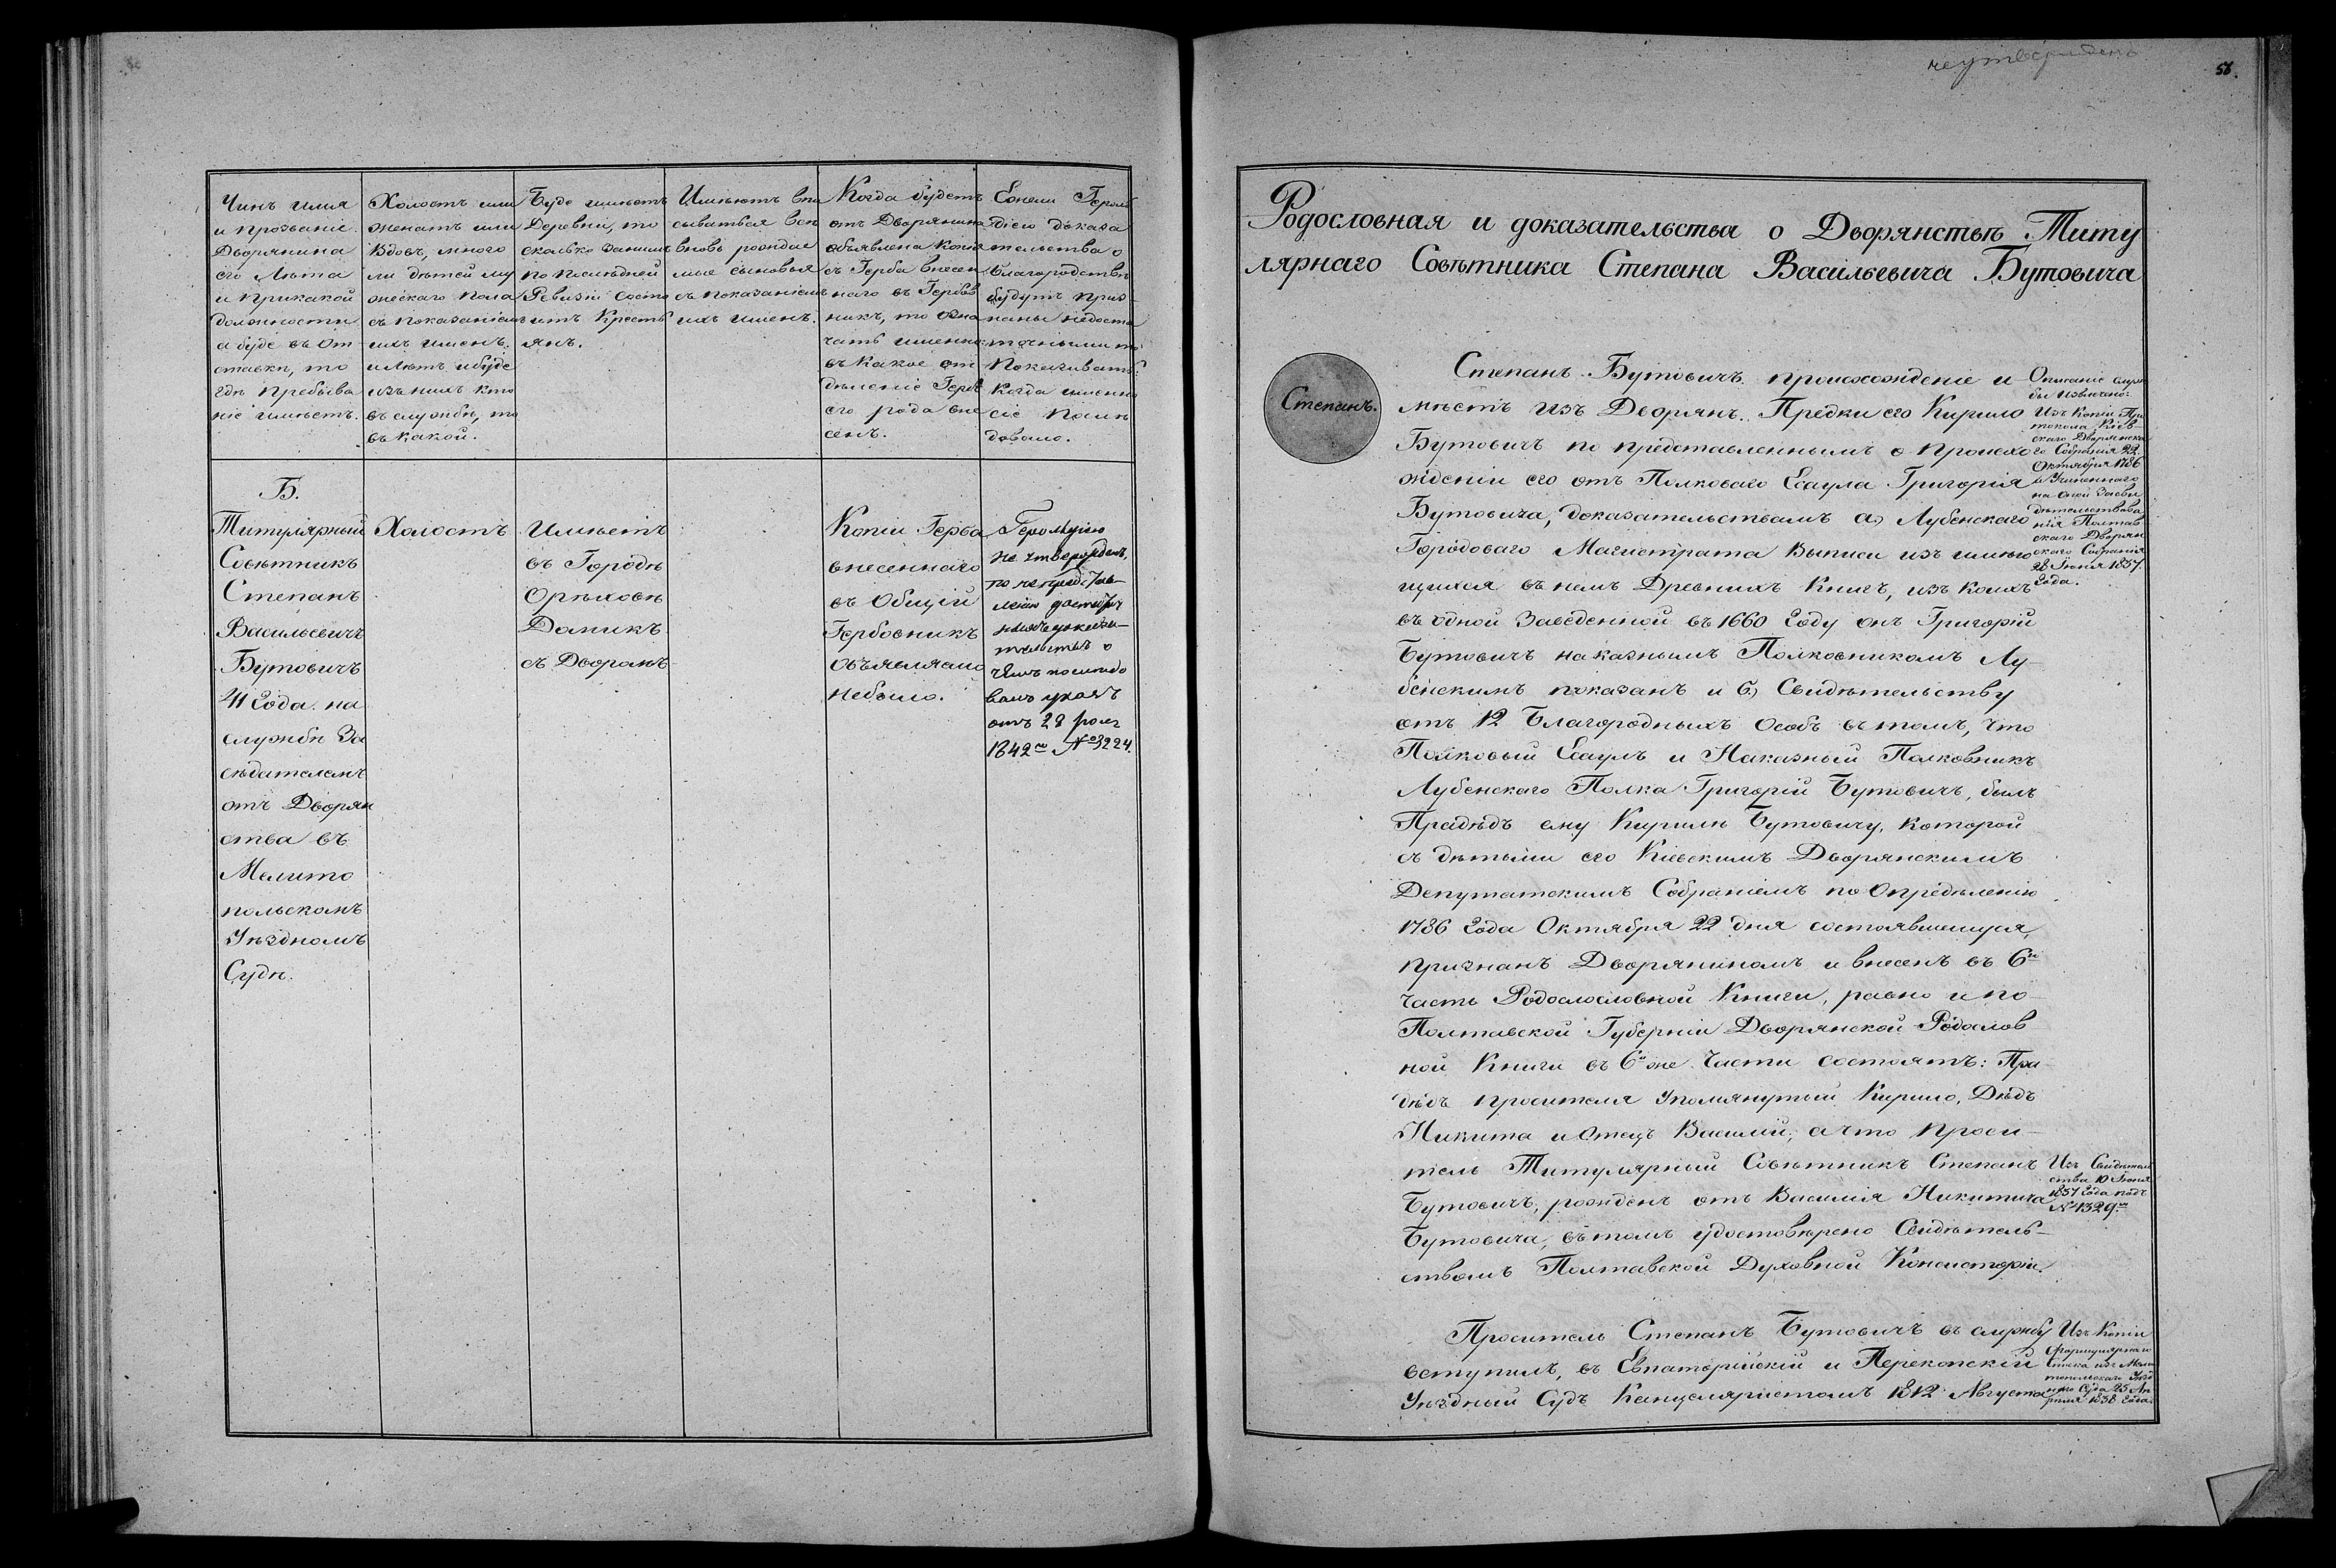 Чинъ имя
и прозваніе.
Дворянина
его Лѣта
и прикакой
должности
а буде въ От
ставки, то
гдѣ пребыва
ніе имѣетъ.
Холостъ или
женатъ или
Вдовъ, много
ли дѣтей му
жескаго пола
съ показаніемъ
ихъ именъ.
и Лѣтъ ибуде
изъ нихъ кто
въ службѣ, то
въ какой.
Буде имѣетъ
Деревни, то
сколько занимъ
по послѣдней
Ревизіи состо
итъ Кресть
янъ.
Имѣютъ впи
сываться вон
вновь рождае
мые сыновья
съ показаніемъ
ихъ именъ.
Когда будетъ
отъ Дворянина
объявлена копія
съ Герба внесен
наго въ Гербов
никъ, то озна
чать именно
въ какое от
дѣленіе Гербъ
его рода вне
сенъ.
Ежели Герольд
діею доказа
тельства о
Благородствѣ
будутъ приз
наны недоста
точными то
Показывать:
Когда именно
сіе послѣ
довало.
Б.
Титулярный
Совѣтникъ
Степанъ
Васильевичъ
Бутовичъ
41 Года. на
службѣ За
сѣдателемъ
отъ Дворян
ства въ
Мелито
польскомъ
Уѣздномъ
Судѣ.
Холостъ
Имѣетъ
въ Городѣ
Орѣховѣ
Домикъ
съ Дворомъ
Копіи Герба
внесеннаго
въ Общій
Гербовникъ
Объявляемо
небыло.
Герольдіею
не утвержденъ,
по непредстав-
о
чемъ послѣдо
валъ указъ
отъ 28
1842го № 3224.
неутвержденъ
56.
Родословная и доказательства о Дворянствѣ Титу
лярнаго Совѣтника Степана Васильевича Бутовича
Степанъ.
Степанъ Бутовичъ происхожденіе и
мѣетъ изъ Дворянъ. Предки его Кирило
Бутовичъ по представленнымъ о происхо
жденіи его отъ Полковаго Есаула Григорія
Бутовича, доказательствамъ а) Лубенскаго
Городоваго Магистрата Выписи изъ имѣю
щихся въ немъ Древнихъ Книгъ, изъ коихъ
въ одной Заведенной въ 1660 Году онъ Григорій
Бутовичъ наказнымъ Полковникомъ Лу-
бенскимъ показанъ и б) Свидѣтельству
отъ 12 Благородныхъ Особъ въ томъ, что
Полковый Есаулъ и Наказный Полковникъ
Лубенскаго Полка Григорій Бутовичъ, былъ
Прадѣдъ ему Кирилѣ Бутовичу, которой
съ дѣтьми его Кіевскимъ Дворянскимъ
Депутатскимъ Собраніемъ по Опредѣленію
1786 Года Октября 22 дня состоявшемуся,
признанъ Дворяниномъ и внесенъ въ 6ю
часть Родословной Книги, равно и по
Полтавской Губерніи Дворянской Родослов
ной Книги въ 6й же Части состоятъ: Пра
дѣдъ просителя упомянутый Кирило, Дѣдъ
Никита и Отецъ Василій; а что проси-
тель Титулярный Совѣтникъ Степанъ
Бутовичъ, рожденъ отъ Василія Никитича
Бутовича, въ томъ удостовѣрено Свидѣтель-
ствомъ Полтавской Духовной Консисторіи.
Проситель Степанъ Бутовичъ въ службу
вступилъ, въ Евпаторійскій и Перекопскій
Уѣздный Судъ Канцеляристомъ 1812 Августа
Описаніе служ
бы Извлечено:
Изъ Копіи Про
токола Кіев-
скаго Дворянска
го Собранія 22
Октября 1786
и Учиненнаго
на оной Засви
дѣтельствова
нія Полтав
скаго Дворян
скаго Собранія
28 Іюня 1837.
Года.
Изъ Свидѣтель
ства 10 Іюня
1837 Года подъ
№ 1329.
Изъ Копіи
Формулярнаго
списка изъ Мели
топольскаго Уѣзд
наго Суда 25 Ап
рѣля 1838 Года.